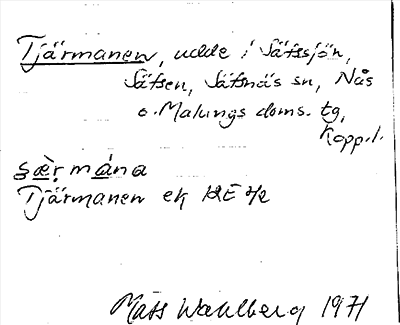 Tjärmanen, udde i Säfssjön,
Säfsen, Säfsnäs sn, Nås
o. Malungs doms. tg,
Kopp.l.
ṣæ̀ṛmána
Tjärmanen ek
Mats Wahlberg 1971